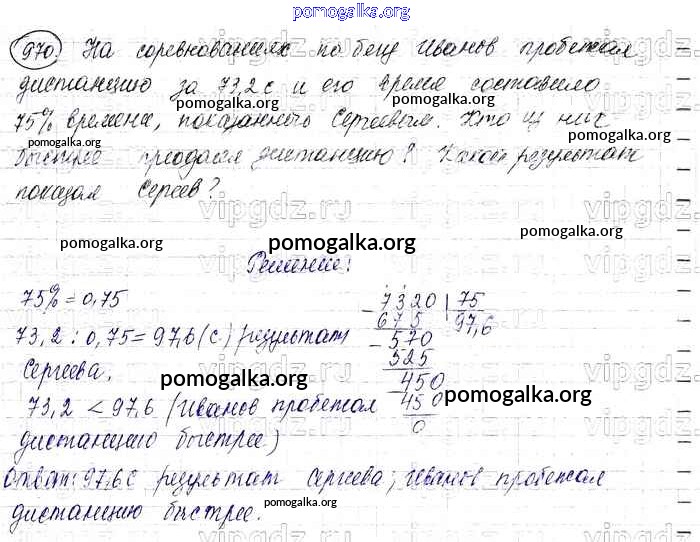 pomogalka.org
970. На соревнованиях по бегу Иванов пробежал
дистанцию за 73,2 с и его время составило
pomogalka.org pomogalka.org
75% времени, показанного Сергеевым. Кто из них
pomogalka.org
быстрее преодолел дистанцию? Какой результат
показал Сергеев?
vipgdz.ru vipgdz.ru vipgdz
pomogalka.org pomogalka.org pomogalka.org
Решение:
75% = 0,75
73,2 : 0,75 = 97,6 (с) результат
Сергеева.
7320 | 75
675 97,6
570
525
450
450
0
pomogalka.org pomogalka.org
73,2 < 97,6 (Иванов пробежал
дистанцию быстрее)
Ответ: 97,6 с результат Сергеева; Иванов пробежал
дистанцию быстрее.
pomogalka.org